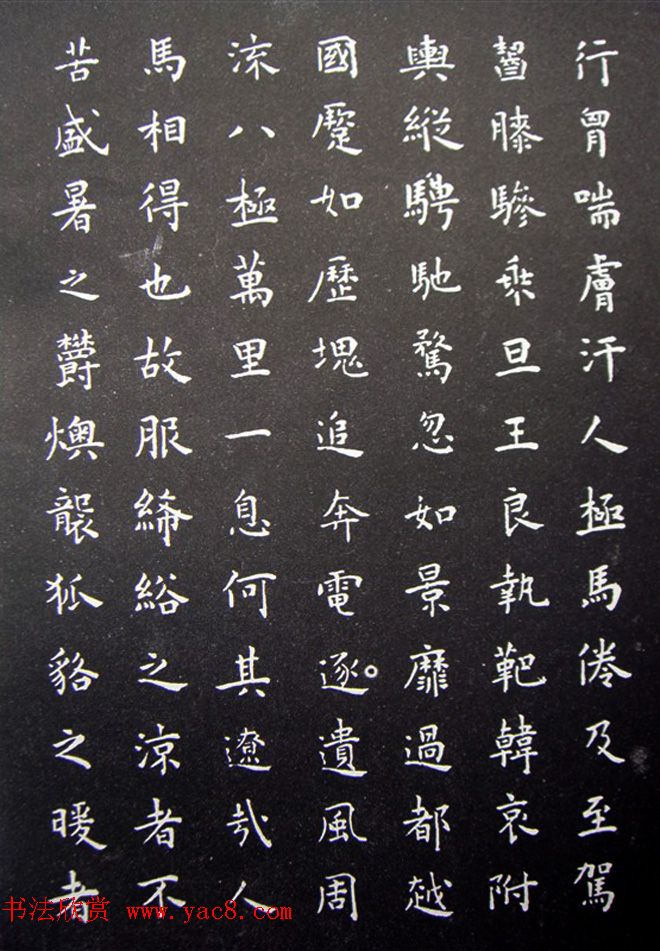 行胷喘膚汗人極馬倦及至駕
齧膝驂乘旦王良執靶韓哀附
輿縱騁馳騖忽如景靡過都越
國蹷如歷塊追奔電逐遺風周
流八極萬里一息何其遼哉人
馬相得也故服絺綌之涼者不
苦盛暑之鬱燠襲狐貉之暖者
书法欣赏 www.yac8.com